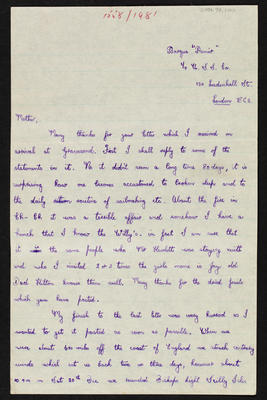 1558/1981
Barque "Penang"
c/o
120 Leadenhall St.
London E.C.3.
Mother,
Many thanks for your letter which I received on
arrival at Gravesend. First I shall reply to some of the
statements in it. No it didn't seem a long time 80 days, it is
surprising how one becomes accustomed to broken sleep and to
the daily routine of sailmaking etc. About the fire in
it was a terrible affair and somehow I have a
hunch that I know the Willy's. in fact I am sure that
it is the same people who Mr Hewlett was staying with
and who I visited 2 or 3 times the girls name is Joy. old
Dad Hilton knows them well. Many thanks for the dried fruits
which you have posted.
My finish to the last letter was very hurried as I
wanted to get it posted as soon as possible. When we
were about 600 miles off the coast of England we struck easterly
winds which set us back two or three days, however about
10 a.m. on Sat 20th Dec we sounded Bishops light Scilly Isles